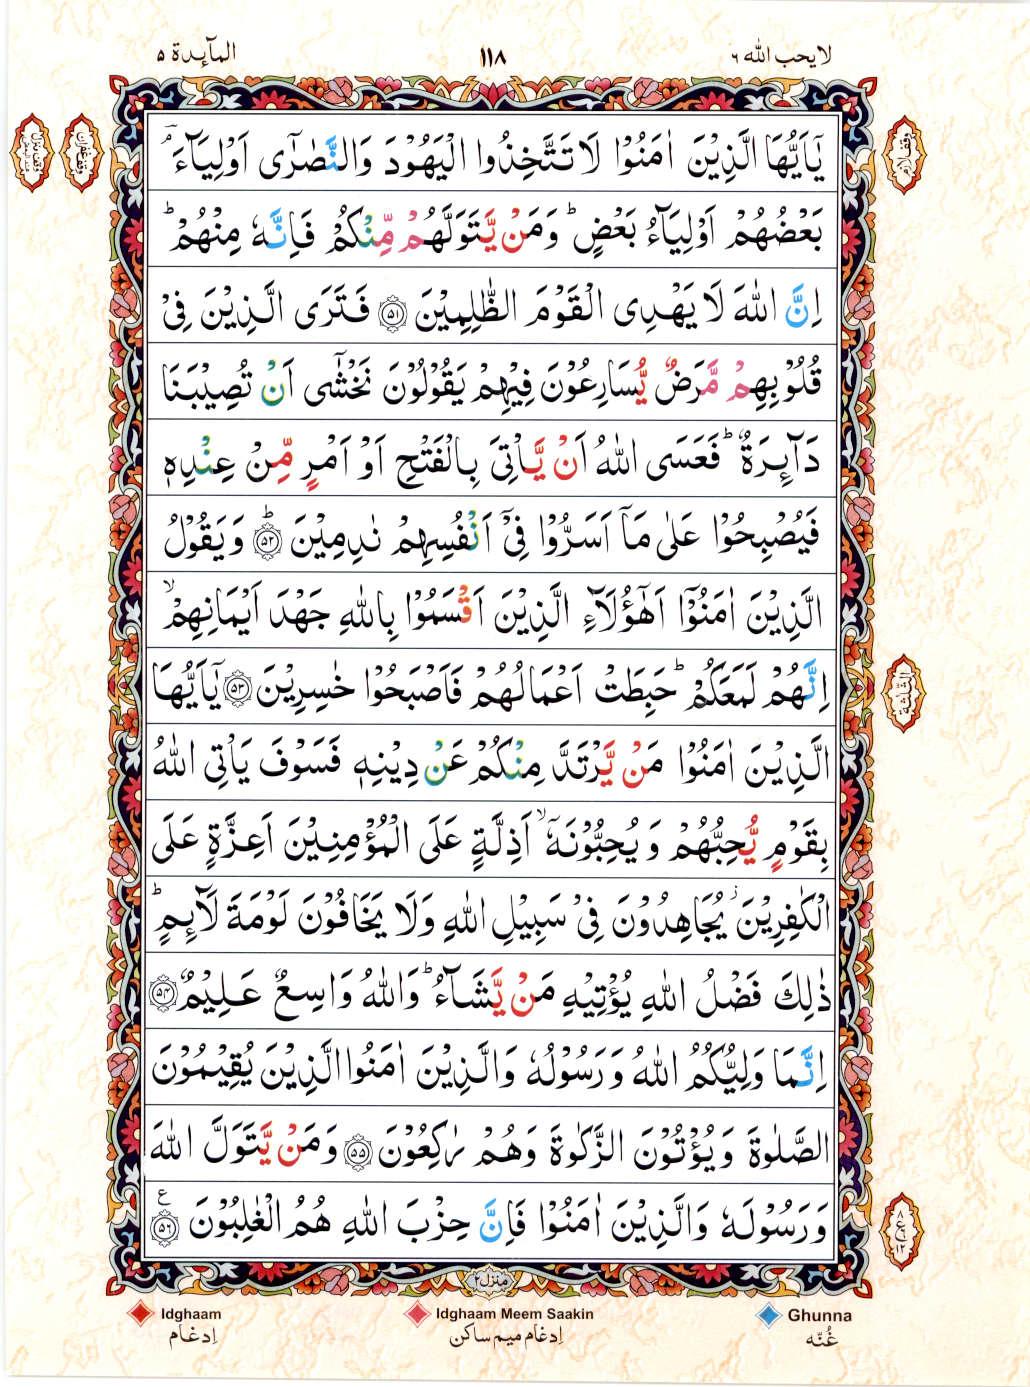 لا يحب الله ٦ ١١٨ المآئدة ٥
يٰۤاَيُّهَا الَّذِيْنَ اٰمَنُوْا لَا تَتَّخِذُوا الْيَهُوْدَ وَالنَّصٰرٰۤى اَوْلِيَآءَ ۘؔ
بَعْضُهُمْ اَوْلِيَآءُ بَعْضٍ ؕ وَمَنْ يَّتَوَلَّهُمْ مِّنْكُمْ فَاِنَّهٗ مِنْهُمْ ؕ
اِنَّ اللّٰهَ لَا يَهْدِى الْقَوْمَ الظّٰلِمِيْنَ ﴿۵۱﴾ فَتَرَى الَّذِيْنَ فِىْ
قُلُوْبِهِمْ مَّرَضٌ يُّسَارِعُوْنَ فِيْهِمْ يَقُوْلُوْنَ نَخْشٰٓى اَنْ تُصِيْبَنَا
دَآئِرَةٌ ؕ فَعَسَى اللّٰهُ اَنْ يَّاْتِىَ بِالْفَتْحِ اَوْ اَمْرٍ مِّنْ عِنْدِهٖ
فَيُصْبِحُوْا عَلٰى مَاۤ اَسَرُّوْا فِىْۤ اَنْفُسِهِمْ نٰدِمِيْنَ ﴿۵۲﴾ؕ وَيَقُوْلُ
الَّذِيْنَ اٰمَنُوْۤا اَهٰٓؤُلَآءِ الَّذِيْنَ اَقْسَمُوْا بِاللّٰهِ جَهْدَ اَيْمَانِهِمْ ۙ
اِنَّهُمْ لَمَعَكُمْ ؕ حَبِطَتْ اَعْمَالُهُمْ فَاَصْبَحُوْا خٰسِرِيْنَ ﴿۵۳﴾ يٰۤاَيُّهَا
الَّذِيْنَ اٰمَنُوْا مَنْ يَّرْتَدَّ مِنْكُمْ عَنْ دِيْنِهٖ فَسَوْفَ يَاْتِى اللّٰهُ
بِقَوْمٍ يُّحِبُّهُمْ وَيُحِبُّوْنَهٗۤ ۙ اَذِلَّةٍ عَلَى الْمُؤْمِنِيْنَ اَعِزَّةٍ عَلَى
الْكٰفِرِيْنَ ؗ يُجَاهِدُوْنَ فِىْ سَبِيْلِ اللّٰهِ وَلَا يَخَافُوْنَ لَوْمَةَ لَآئِمٍ ؕ
ذٰلِكَ فَضْلُ اللّٰهِ يُؤْتِيْهِ مَنْ يَّشَآءُ ؕ وَاللّٰهُ وَاسِعٌ عَلِيْمٌ ﴿۵۴﴾
اِنَّمَا وَلِيُّكُمُ اللّٰهُ وَرَسُوْلُهٗ وَالَّذِيْنَ اٰمَنُوا الَّذِيْنَ يُقِيْمُوْنَ
الصَّلٰوةَ وَيُؤْتُوْنَ الزَّكٰوةَ وَهُمْ رٰكِعُوْنَ ﴿۵۵﴾ وَمَنْ يَّتَوَلَّ اللّٰهَ
وَرَسُوْلَهٗ وَالَّذِيْنَ اٰمَنُوْا فَاِنَّ حِزْبَ اللّٰهِ هُمُ الْغٰلِبُوْنَ ﴿۵۶﴾ ع
وقف لازم
وقف غفران
الثلثة
ع ٨ ١٢
منزل ٢
Idghaam Idghaam Meem Saakin Ghunna
اِدغام اِدغام میم ساکن غُنّه